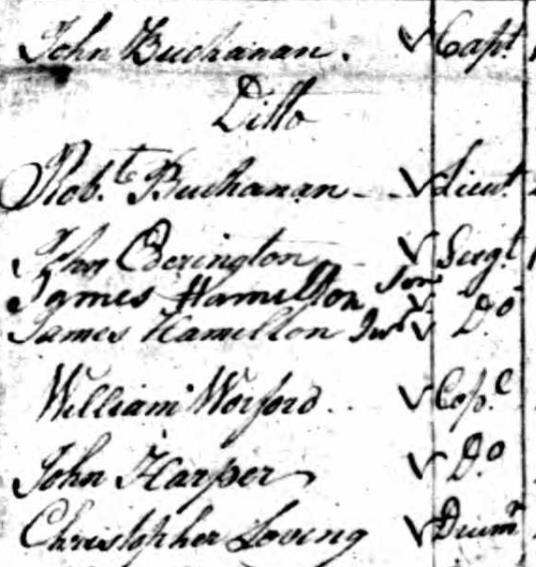 John Buchanan. √ Capt
Ditto
Robt. Buchanan √ Lieut
John Oderington √ Sergt
James Hamilton Sen √ Do
James Hamilton Junr √
William Worford √ Cop.l
John Harper √ Do
Christopher Loving √ Drumr